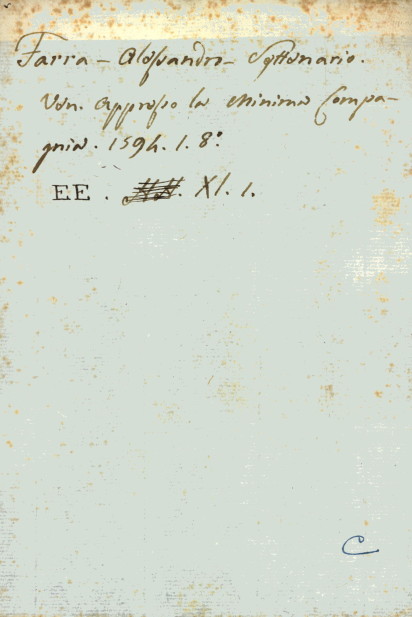 Farra - Alessandro - Settenario.
Ven. Appresso la Minima Compa-
gnia. 1594. 1. 8º.
EE. XI. 1.
C